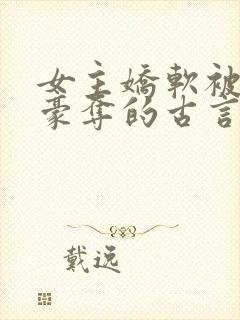 女主嬌軟被
豪奪的古言
戴逸